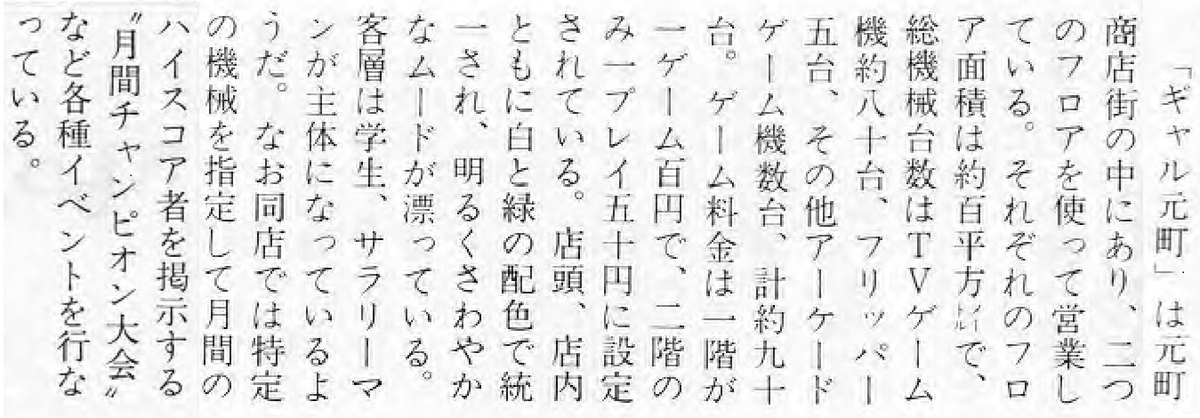 「ギャル元町」は元町
商店街の中にあり、二つ
のフロアを使って営業し
ている。それぞれのフロ
ア面積は約百平方メートルで、
総機械台数はTVゲーム
機約八十台、フリッパー
五台、その他アーケード
ゲーム機数台、計約九十
台。ゲーム料金は一階が
一ゲーム百円で、二階の
み一プレイ五十円に設定
されている。店頭、店内
ともに白と緑の配色で統
一され、明るくさわやか
なムードが漂っている。
客層は学生、サラリーマ
ンが主体になっているよ
うだ。なお同店では特定
の機械を指定して月間の
ハイスコア者を掲示する
〝月間チャンピオン大会〟
など各種イベントを行な
っている。